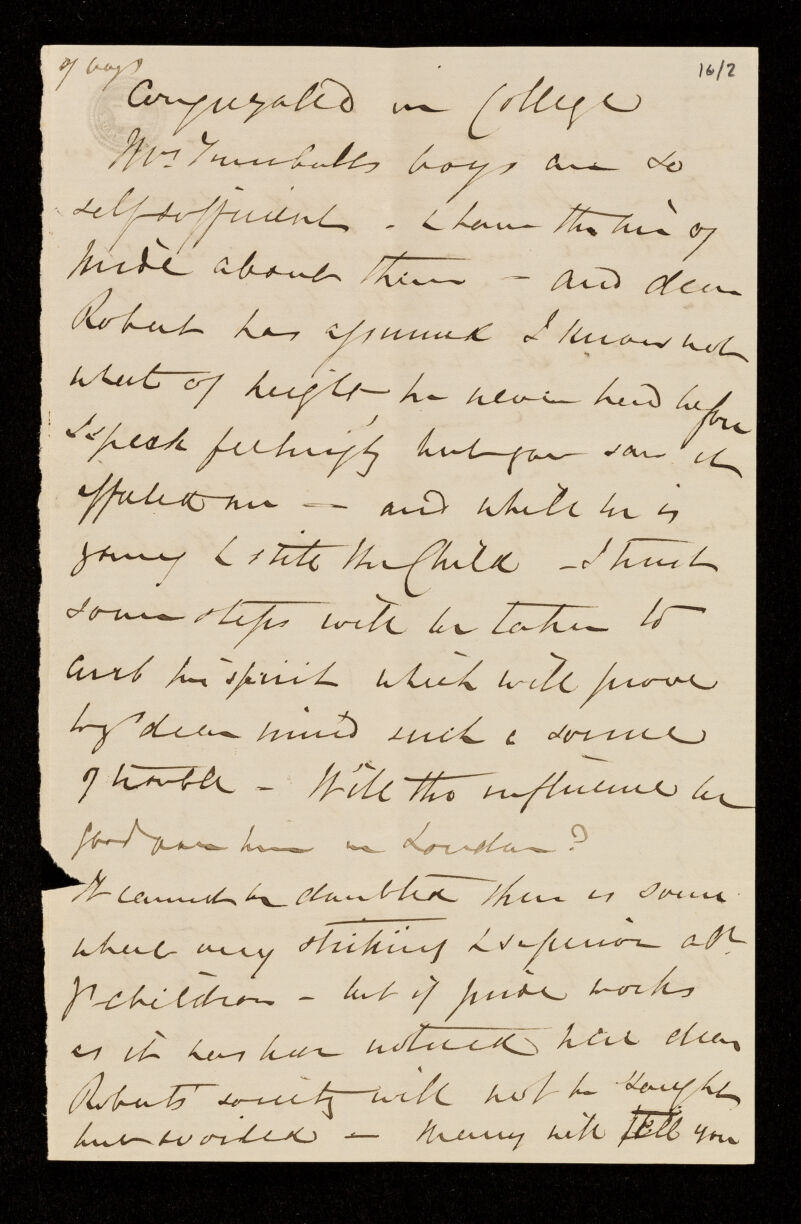 16/2
of boys
Congregated in College
Mrs Turnbulls boys are so
self sufficient - & have the air of
pride about them - and dear
Robert has assumed I know not
what of height, he never had before
I speak feelingly but you saw it
affected me - and while he is
young & still the Child - I trust
some steps will be taken to
curb his spirit which will prove
to yr dear mind such a source
of trouble - Will the influence be
good over him in London?
It cannot be doubted there is some
what very striking & superior abt
yr children - but if pride works
as it has been noticed here dear
Roberts' society will not be sought
but avoided - Many will tell you